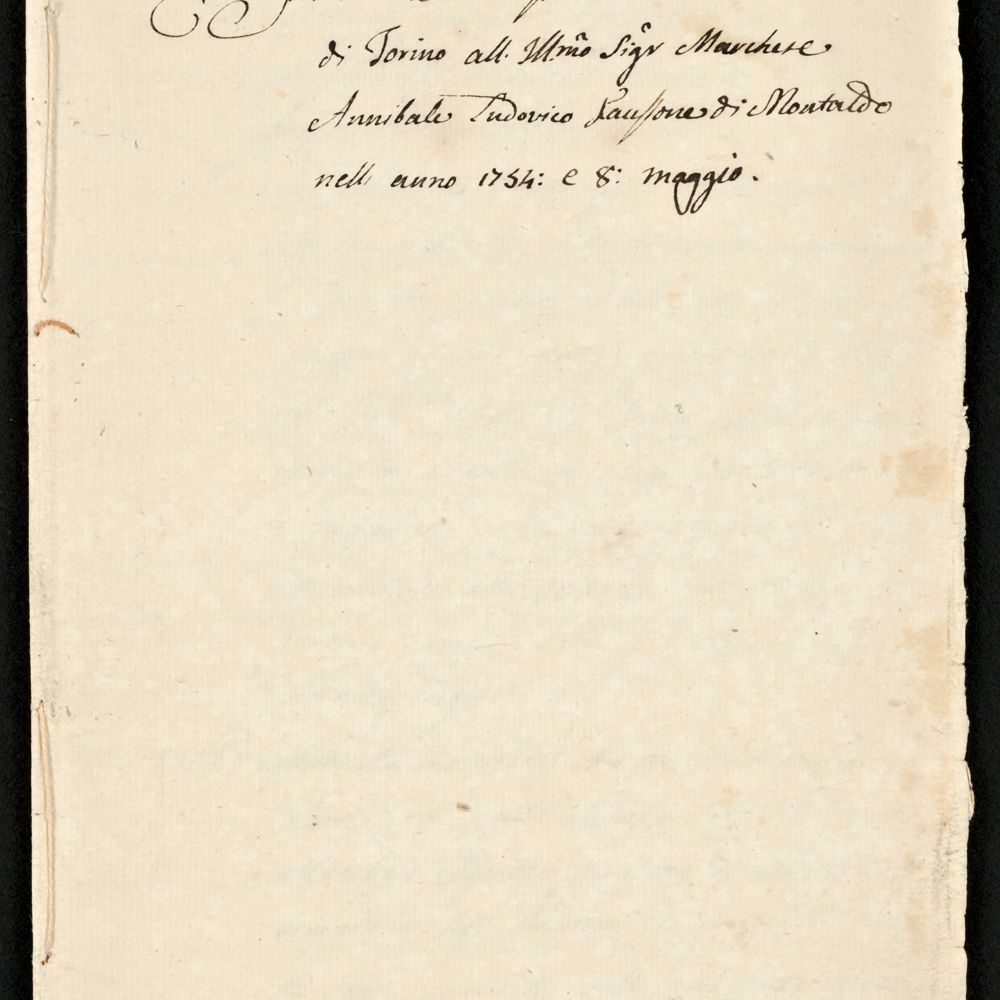 di Torino all. Ill.mo Sig.r Marchese
Annibale Ludovico Faussone di Montaldo
nell anno 1754: e 8: maggio.